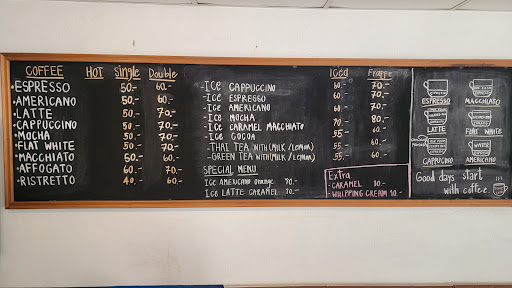 COFFEE HOT Single Double
• ESPRESSO 50.- 60.-
• AMERICANO 50.- 60.-
• LATTE 50.- 70.-
• CAPPUCCINO 50.- 70.-
• MOCHA 50.- 70.-
• FLAT WHITE 50.- 70.-
• MACCHIATO 50.- 60.-
• AFFOGATO 60.- 70.-
• RISTRETTO 40.- 60.-
ICED Frappe
-ICE CAPPUCCINO 60.- 70.-
-ICE ESPRESSO 60.- 70.-
-ICE AMERICANO 60.- 70.-
-ICE MOCHA 70.- 80.-
-ICE CARAMEL MACCHIATO
-ICE COCOA 55.- 60.-
-THAI TEA WITH (MILK/LEMON)
-GREEN TEA WITH (MILK/LEMON) 55.- 60.-
SPECIAL MENU
ICE AMERICANO orange 70.-
ICE LATTE CARAMEL 70.-
Extra
- CARAMEL 10.-
- WHIPPING CREAM 10.-
ESPRESSO MACCHIATO
LATTE FLAT WHITE
CAPPUCINO AMERICANO
Good days start
with coffee